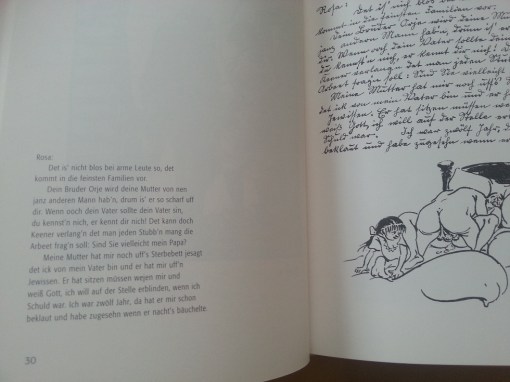 Rosa:
Det is' nicht blos bei arme Leute so, det
kommt in die feinsten Familien vor.
Dein Bruder Orje wird deine Mutter von nen
janz anderen Mann hab'n, drum is' er so scharf uff
dir. Wenn noch dein Vater sollte dein Vater sin,
du kennst'n nich, er kennt dir nich! Det kann doch
Keener verlang'n det man jeden Stubb'n mang die
Arbeet frag'n soll: Sind Sie vielleicht mein Papa?
Meine Mutter hat mir noch uff's Sterbebett jesagt
det ick von mein Vater bin und er hat mir uff'n
Jewissen. Er hat sitzen müssen wejen mir und
weiß Gott, ich will auf der Stelle erblinden, wenn ich
Schuld war. Ich war zwölf Jahr, da hat er mir schon
beklaut und habe zugesehn wenn er nacht's bäuchelte.
30
Rosa: Det is' nich blos bei
kommt in die feinsten Familien vor.
Dein Bruder Orje wird deine
janz andern Mann hab'n, drum is' er
dir. Wenn noch dein Vater sollte dein
du kennst'n nich, er kennt dir nich!
Keener verlangen det man jeden
Arbeet fragen soll: Sind Sie vielleicht
Meine Mutter hat mir noch uff's
det ick von mein Vater bin und er
Jewissen. Er hat sitzen müssen
weiß Gott, ich will auf der Stelle
Schuld war. Ich war zwölf Jahr,
beklaut und habe zugesehn wenn er